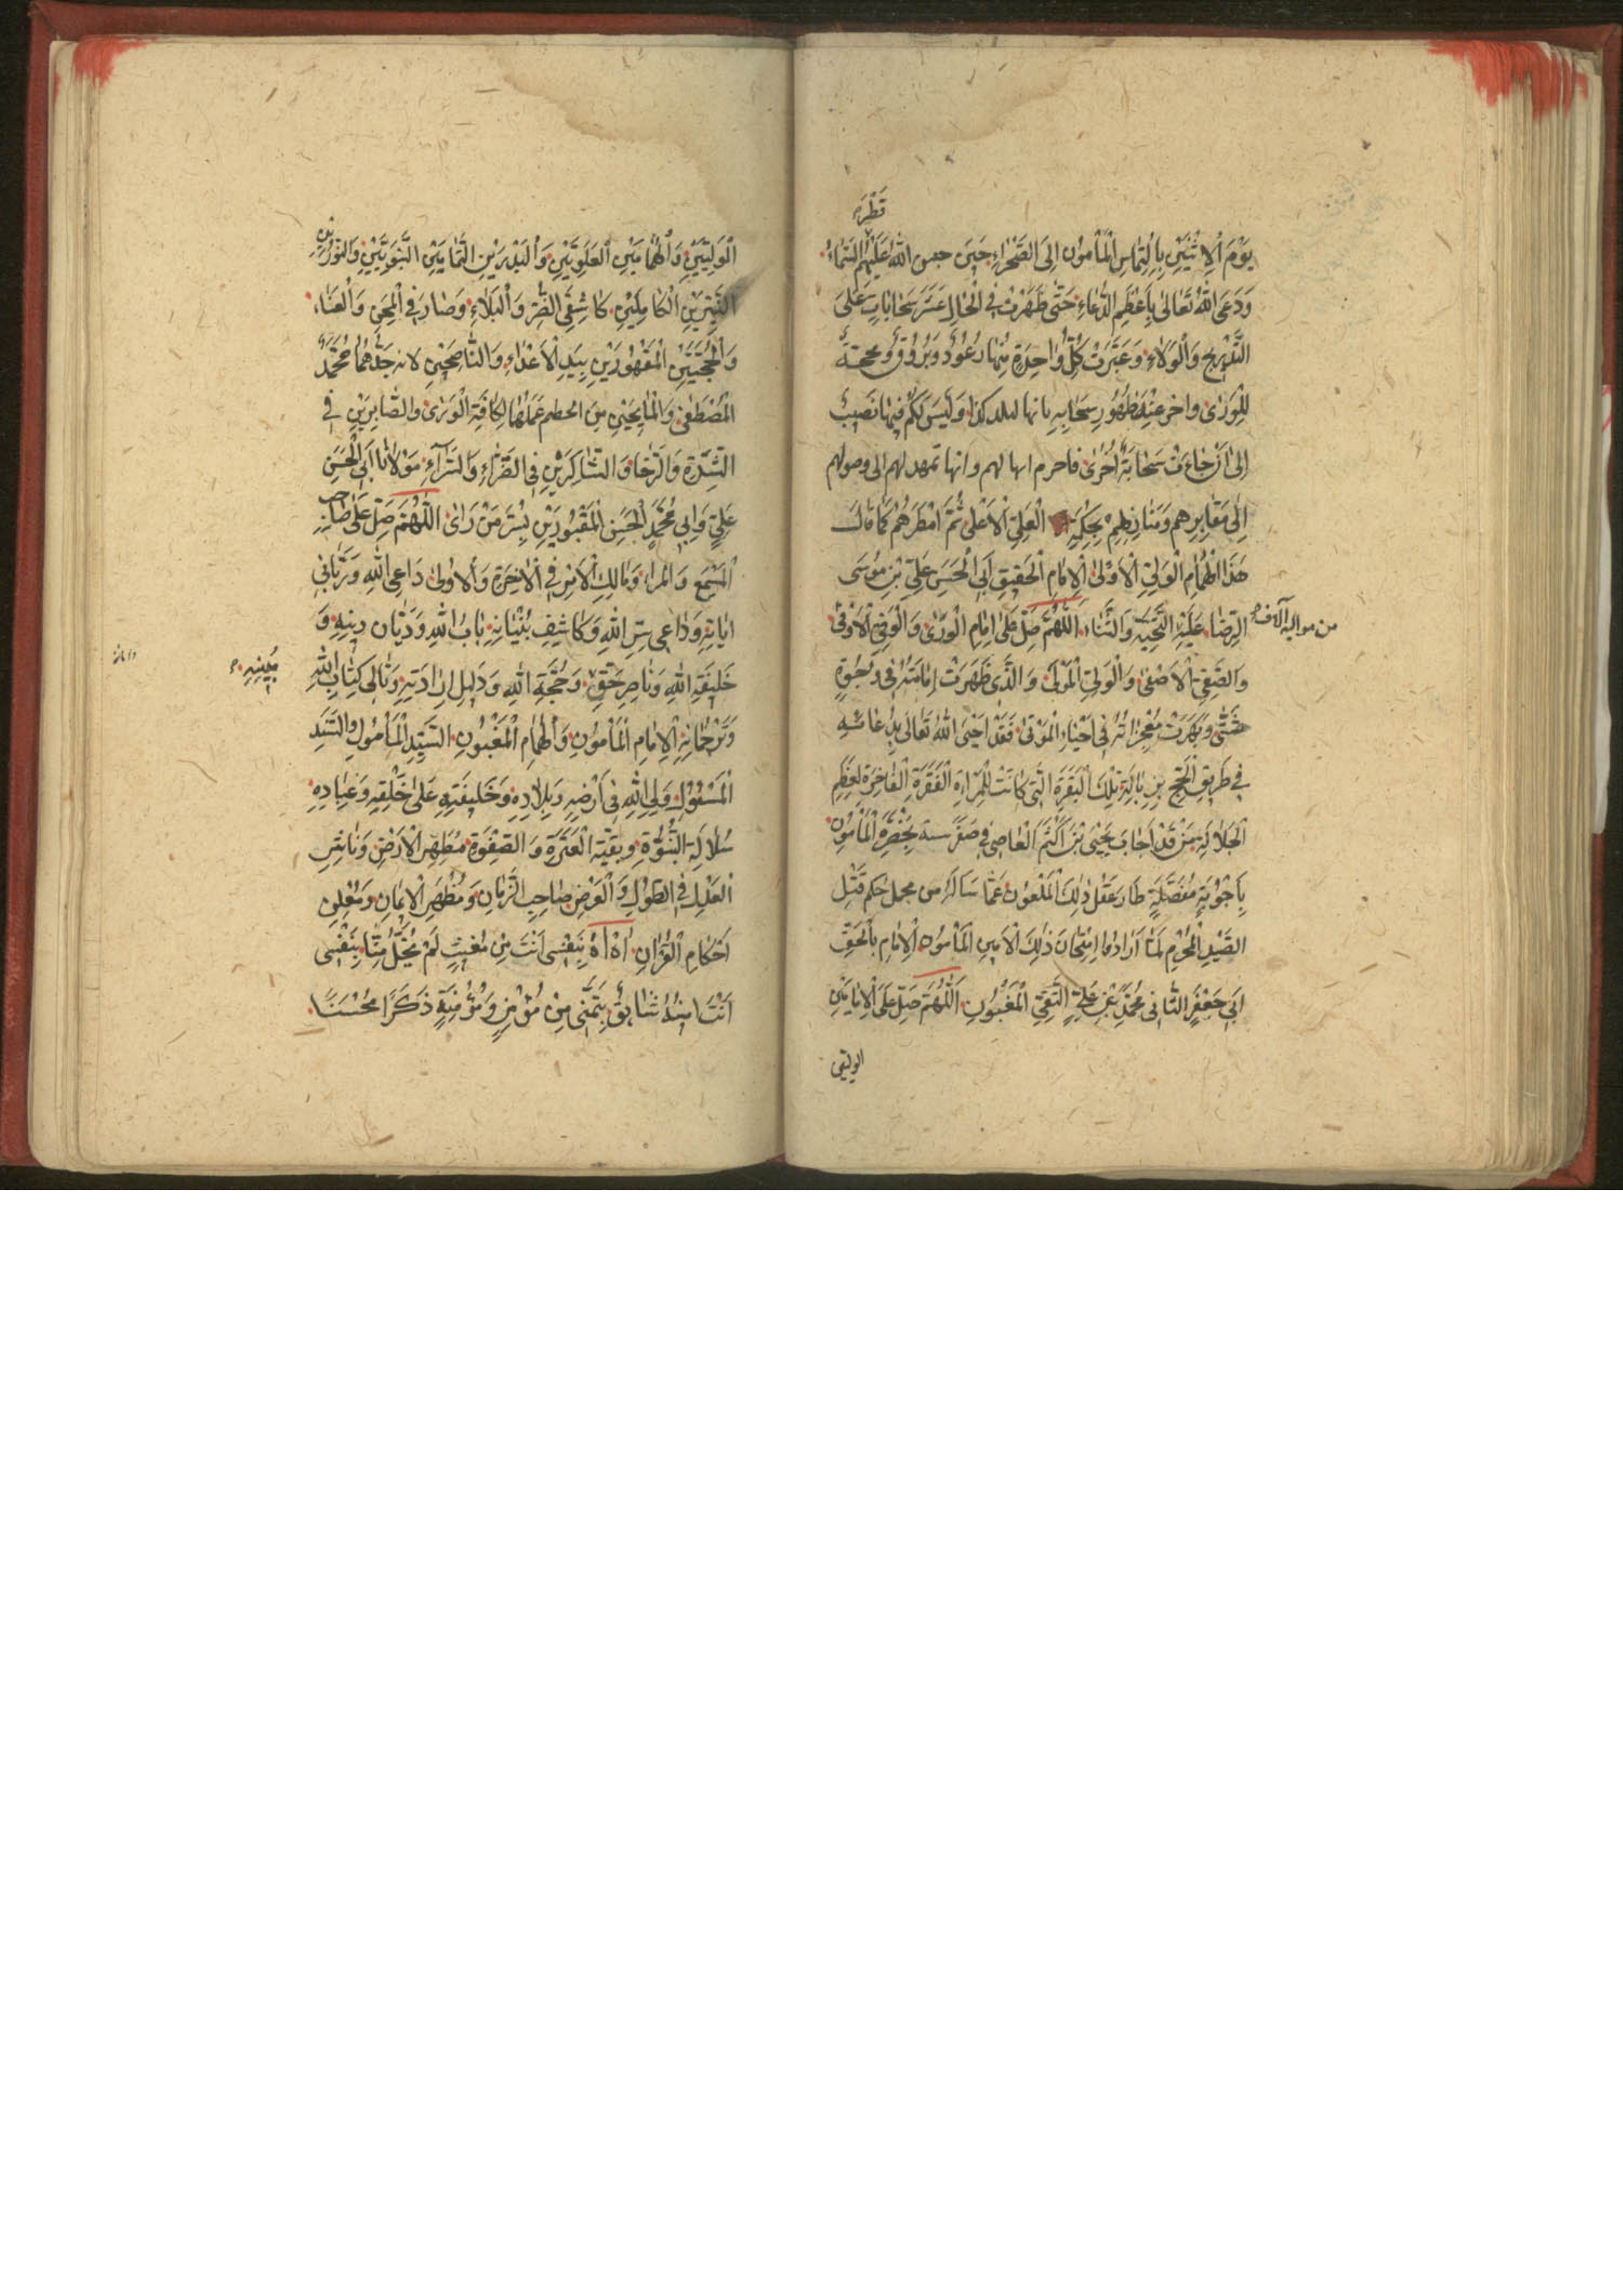 قطرة
يَوْمَ الْاِثْنَيْنِ بِالْتِمَاسِ الْمَأْمُونِ اِلَى الصَّحْرَاءِ حِينَ حبس اللّٰهُ عَلَيْهِمُ السَّمَاءُ
وَدَعَى اللّٰهَ تَعَالٰى بِاَعْظَمِ الدُّعَاءِ حَتّٰى ظَهَرَتْ فِي الْحَالِ عَشَرَ سَحَابَاتٍ عَلٰى
التَّدْرِيجِ وَالْوَلَاءِ وَعَبَّرَتْ كُلُّ وَاحِدَةٍ مِنْهَا رُعُودٌ وَبُرُوقٌ
لِلْوَرٰى واخبر عِنْدَ ظُهُورِ سَحَابِهِ بانها لبلد كذا وَلَيْسَ لَكُمْ فِيهَا نَصِيبٌ
اِلٰى اَنْ جَاءَتْ سَحَابَةٌ اُخْرٰى فاخبرهم انها لهم وانها تمهد لهم الى وصولهم
اِلٰى مَقَابِرِهِم وَمَنَازِلِهِمْ بِحِكْمَةِ الْعَلِيِّ الْاَعْلٰى ثُمَّ امْطَرَهُمْ كَمَا قَالَ
هٰذَا الْهُمَامِ الْوَلِيِّ الْاَوْلٰى الْاِمَامِ الْحَقِيقِ اَبِي الْحَسَنِ عَلِيِّ بْنِ مُوسٰى
الرِّضَا عَلَيْهِ التَّحِيَّةُ وَالثَّنَاءُ اَللّٰهُمَّ صَلِّ عَلٰى اِمَامِ الْوَرٰى وَالْوَفِيِّ الْاَوْفٰى
من مواليه آلاف
وَالصَّفِيِّ الْاَصْفٰى وَالْوَلِيِّ الْمَوْلٰى وَالَّذِي ظَهَرَتْ اِمَامَتُهُ فِي وُجُوهٍ
شَتّٰى وَبَهَرَتْ مُعْجِزَاتُهُ فِي اَحْيَاءِ الْمَوْتٰى فَقَدْ اَحْيَى اللّٰهُ تَعَالٰى بِدُعَائِهِ
فِي طَرِيقِ الْحَجِّ تِلْكَ الْبَقَرَةَ الَّتِي كَانَتْ لِلْمَرْاَةِ الْفَقَرَةِ الْفَاخِرَةِ لِعِظَمِ
الْجَلَالَةِ مَنْ قَدْ اَجَابَ يَحْيَى بْنَ اَكْثَمَ الْعَاصِي فِي صِغَرِ سنه بِحَضْرَةِ الْمَأْمُونِ
بِاَجْوِبَةٍ مُفَصَّلَةٍ طَارَ عَقْلُ ذٰلِكَ الْمَلْعُونِ عَمَّا سَاَلَهُ من مجمل حُكم قَتْلِ
الصَّيْدِ الْمُحْرِمِ لَمَّا اَرَادُوا اِمْتِحَانَ ذٰلِكَ الْاَمِينِ الْمَأْمُونِ الْاِمَامِ بِالْحَقِّ
اَبِي جَعْفَرٍ الثَّانِي مُحَمَّدِ بْنِ عَلِيٍّ التَّقِيِّ الْمَغْبُونِ اَللّٰهُمَّ صَلِّ عَلَى الْاِمَامَيْنِ
الوليين
الْوَلِيَّيْنِ وَالْهُمَامَيْنِ الْعَلَوِيَّيْنِ وَالْبَدْرَيْنِ التَّمَامَيْنِ النَّبَوِيَّيْنِ وَالنُّورَيْنِ
النَّيِّرَيْنِ الْكَامِلَيْنِ كَاشِفَيِ الضُّرِّ وَالْبَلَاءِ وَصَارَ فِي الْمِحَنِ وَالْعَنَاءِ
وَالْحُجَّتَيْنِ الْمَقْهُورَيْنِ بِيَدِ الْاَعْدَاءِ وَالنَّاصِحَيْنِ لامة جَدِّهِمَا مُحَمَّدٍ
الْمُصْطَفٰى لِكَافَّةِ الْوَرٰى وَالصَّابِرَيْنِ فِي
الشِّدَّةِ وَالرَّخَاءِ وَالشَّاكِرَيْنِ فِي الضَّرَّاءِ وَالسَّرَّاءِ مَوْلَانَا اَبِي الْحَسَنِ
عَلِيٍّ وَاَبِي مُحَمَّدٍ الْحَسَنِ الْمَقْبُورَيْنِ بِسُرَّ مَنْ رَاٰى اَللّٰهُمَّ صَلِّ عَلٰى صَاحِبِ
الْمَسْمَعِ وَالْمَرْاٰى وَمَالِكِ الْاَمْرِ فِي الْاٰخِرَةِ وَالْاُولٰى دَاعِي اللّٰهِ وَرَبَّانِيِّ
اٰيَاتِهِ وَدَاعِي سِرِّ اللّٰهِ وَكَاشِفِ بُنْيَانِهِ بَابِ اللّٰهِ وَدَيَّانِ دِينِهِ وَ
خَلِيفَةِ اللّٰهِ وَنَاصِرِ حَقِّهِ وَحُجَّةِ اللّٰهِ وَدَلِيلِ اِرَادَتِهِ وَتَالِي كِتَابِ اللّٰهِ
وَتَرْجُمَانِهِ الْاِمَامِ الْمَأْمُونِ وَالْهُمَامِ الْمَغْبُونِ السَّيِّدِ الْمَأْمُولِ وَالسَّنَدِ
الْمَسْئُولِ وَلِيِّ اللّٰهِ فِي اَرْضِهِ وَبِلَادِهِ وَخَلِيفَتِهِ عَلٰى خَلْقِهِ وَعِبَادِهِ
سُلَالَةِ النُّبُوَّةِ وَبَقِيَّةِ الْعِتْرَةِ وَالصَّفْوَةِ مُطَهِّرِ الْاَرْضِ وَنَاشِرِ
الْعَدْلِ فِي الطُّولِ وَالْعَرْضِ صَاحِبِ الزَّمَانِ وَمُظْهِرِ الْاِيمَانِ وَمُعْلِنِ
اَحْكَامِ الْقُرْاٰنِ اٰهْ اٰهْ بِنَفْسِي اَنْتَ مِنْ مُغَيَّبٍ لَمْ يَخْلُ مِنَّا بِنَفْسِي
اَنْتَ اُمْنِيَّةُ شَائِقٍ يَتَمَنّٰى مِنْ مُؤْمِنٍ وَمُؤْمِنَةٍ ذَكَرَا مُحْسِنًا